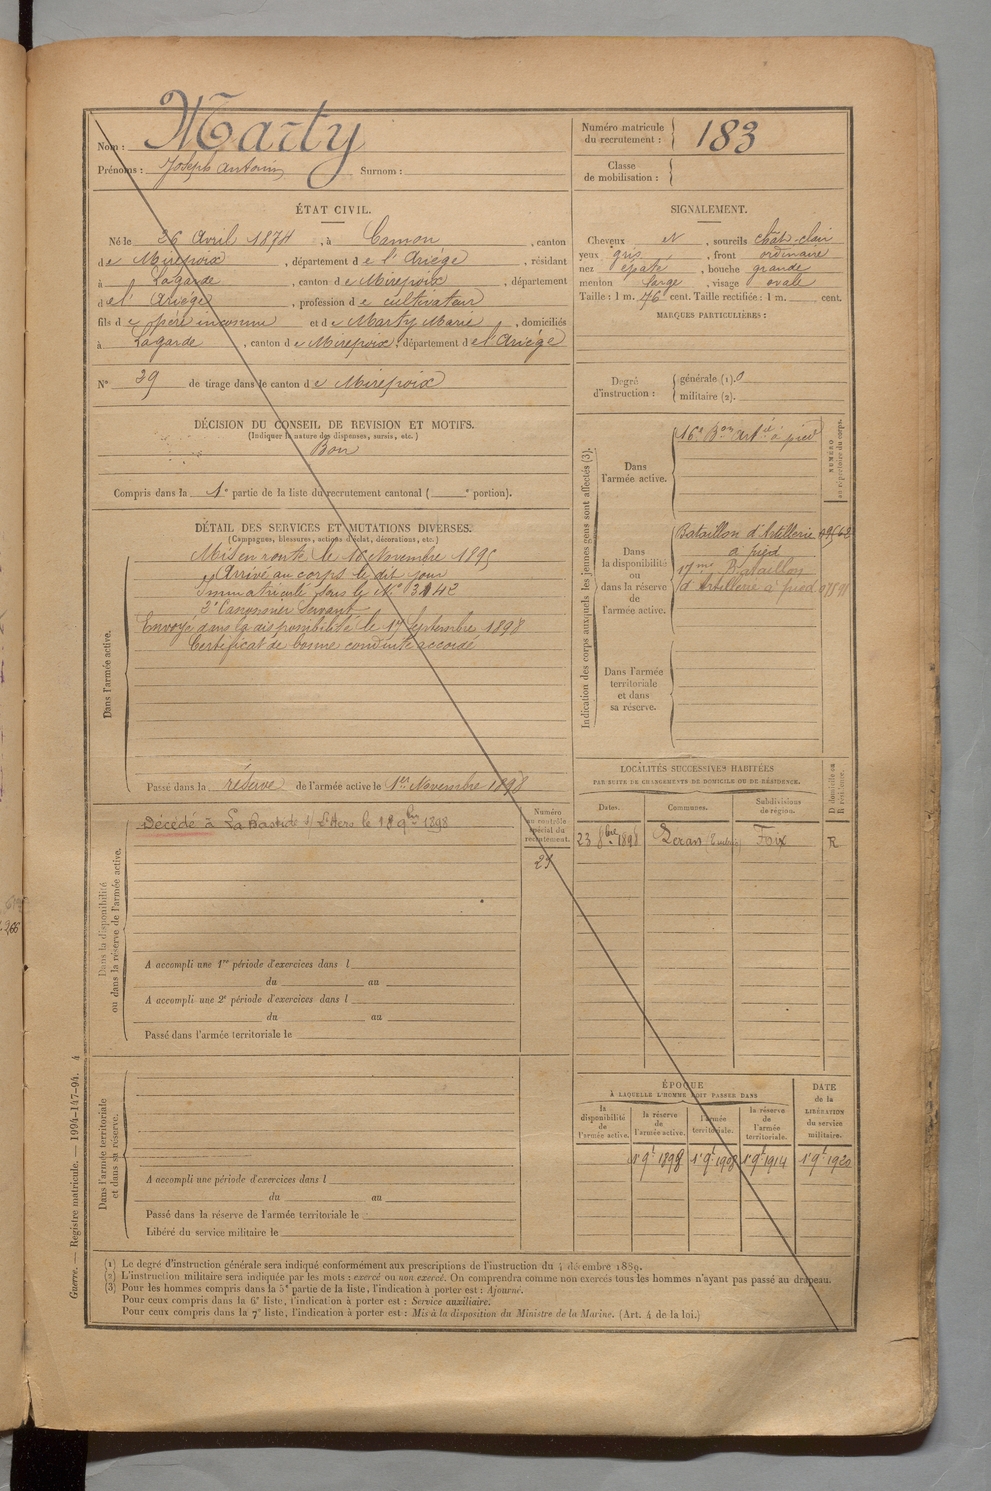 Nom : Marty
Prénoms : Joseph Antonin Surnom :
Numéro matricule du recrutement : 183
Classe de mobilisation :
ÉTAT CIVIL.
Né le 26 Avril 1874, à Camon, canton
de Mirepoix, département de l'Ariège, résidant
à Lagarde, canton de Mirepoix, département
de l'Ariége, profession de cultivateur
fils de père inconnu et de Marty Marie, domiciliés
à Lagarde, canton de Mirepoix, département de l'Ariège
N° 39 de tirage dans le canton de Mirepoix
SIGNALEMENT.
Cheveux et, sourcils chât-clair
yeux gris, front ordinaire
nez épaté, bouche grande
menton large, visage ovale
Taille : 1 m. 76 cent. Taille rectifiée : 1 m. cent.
MARQUES PARTICULIÈRES :
Degré d'instruction :
générale (1). 0
militaire (2).
DÉCISION DU CONSEIL DE REVISION ET MOTIFS.
(Indiquer la nature des dispenses, sursis, etc.)
Bon
Compris dans la 1e partie de la liste du recrutement cantonal ( e portion).
DÉTAIL DES SERVICES ET MUTATIONS DIVERSES.
(Campagnes, blessures, actions d'éclat, décorations, etc.)
Dans l'armée active.
Mis en route le 16 Novembre 1895
Arrivé au corps le dit jour
Immatriculé sous le N°
2e Canonnier Servant
Envoyé dans la disponibilité le 17 Septembre 1898
Certificat de bonne conduite accordé
Passé dans la réserve de l'armée active le 1er Novembre 1898
Indication des corps auxquels les jeunes gens sont affectés (3).
NUMÉRO au répertoire du corps.
Dans l'armée active.
16e Bon Artie à pied
Dans la disponibilité ou dans la réserve de l'armée active.
Bataillon d'Artillerie
à pied
17me Bataillon
d'Artillerie à pied
Dans l'armée territoriale et dans sa réserve.
Dans la disponibilité ou dans la réserve de l'armée active.
Décédé à La Bastide s/ L'Hers le 18 9bre 1898
Numéro au contrôle spécial du recrutement.
A accompli une 1re période d'exercices dans l
du au
A accompli une 2e période d'exercices dans l
du au
Passé dans l'armée territoriale le
LOCALITÉS SUCCESSIVES HABITÉES
PAR SUITE DE CHANGEMENTS DE DOMICILE OU DE RÉSIDENCE.
Dates. Communes. Subdivisions de région. D domicile ou R résidence.
23 8bre 1898 Léran Foix R
Dans l'armée territoriale et dans sa réserve.
A accompli une période d'exercices dans l
du au
Passé dans la réserve de l'armée territoriale le
Libéré du service militaire le
ÉPOQUE
À LAQUELLE L'HOMME DOIT PASSER DANS
la disponibilité de l'armée active.
la réserve de l'armée active.
l'armée territoriale.
la réserve de l'armée territoriale.
DATE de la LIBÉRATION du service militaire.
1er 9bre 1898 1er 9bre 1908 1er 9bre 1914 1er 9bre 1920
(1) Le degré d'instruction générale sera indiqué conformément aux prescriptions de l'instruction du 4 décembre 1889.
(2) L'instruction militaire sera indiquée par les mots : exercé ou non exercé. On comprendra comme non exercés tous les hommes n'ayant pas passé au drapeau.
(3) Pour les hommes compris dans la 5e partie de la liste, l'indication à porter est : Ajourné.
Pour ceux compris dans la 6e liste, l'indication à porter est : Service auxiliaire.
Pour ceux compris dans la 7e liste, l'indication à porter est : Mis à la disposition du Ministre de la Marine. (Art. 4 de la loi.)
Guerre. — Registre matricule. — 1994-147-94. 4